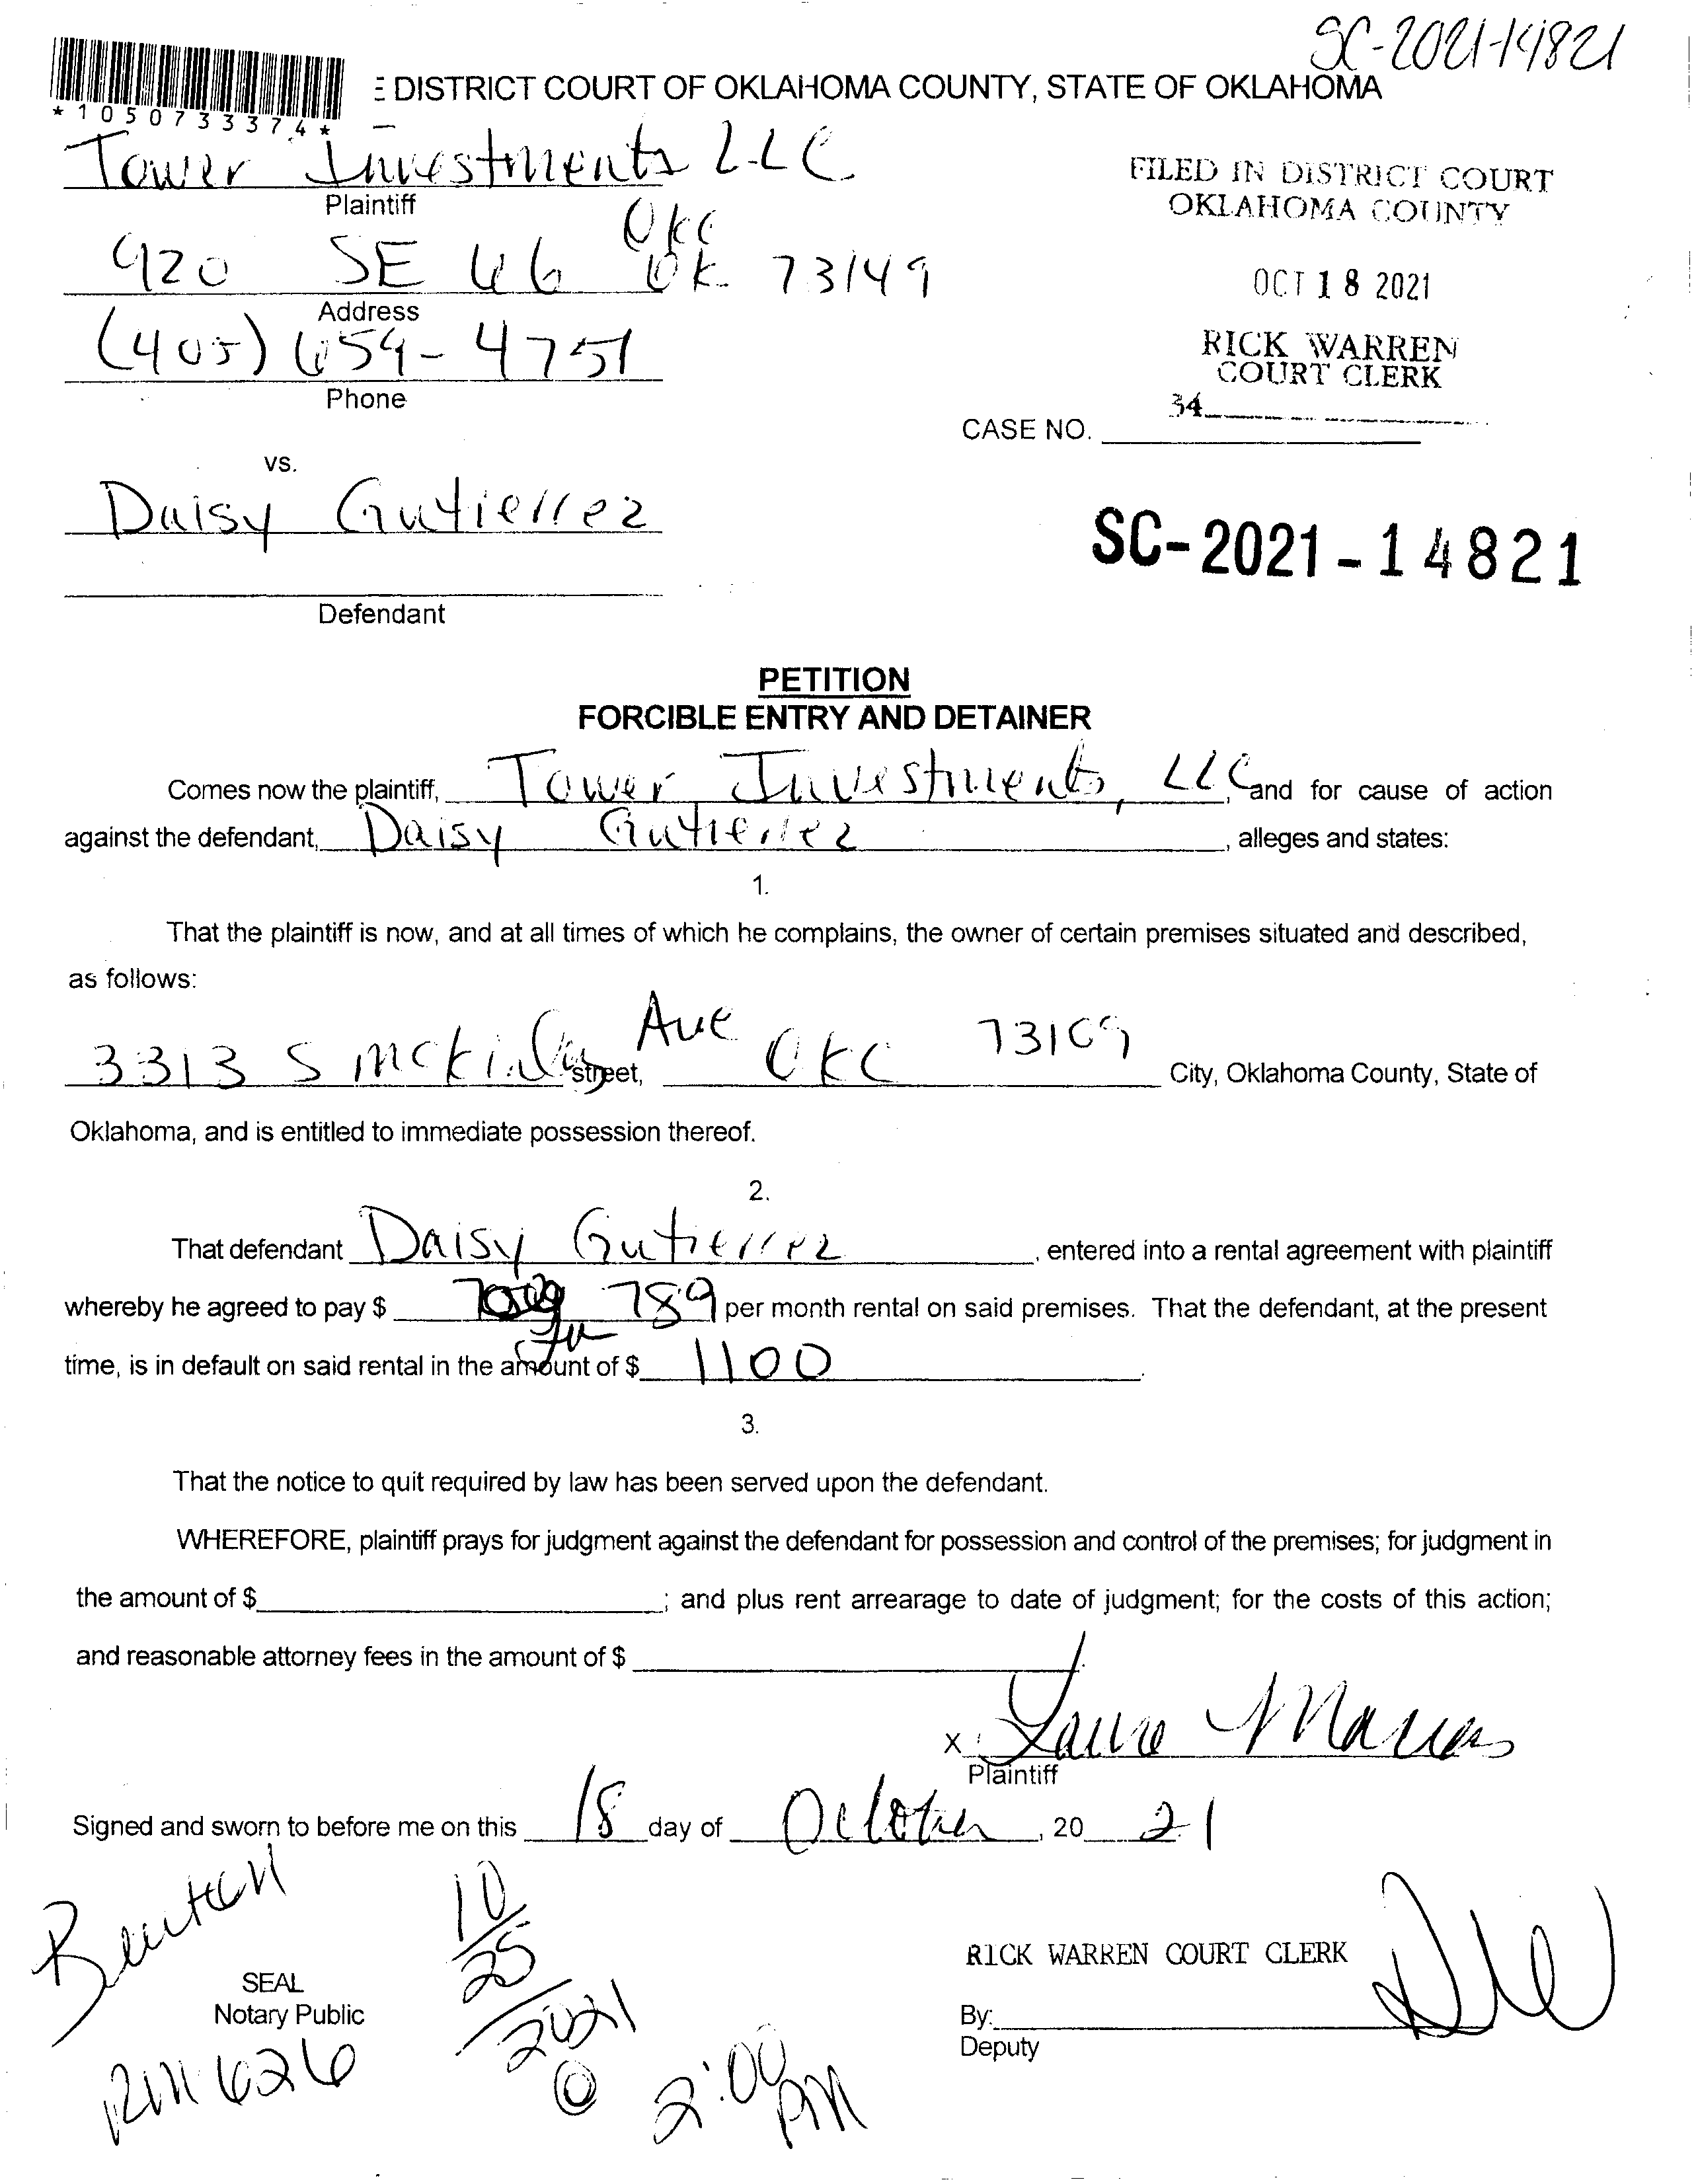 SC-2021-14821
DISTRICT COURT OF OKLAHOMA COUNTY, STATE OF OKLAHOMA
*1050733374*
Tower Investments LLC
Plaintiff
FILED IN DISTRICT COURT
OKLAHOMA COUNTY
OKC
920 SE 66 OK 73149
Address
OCT 18 2021
(405) 659-4751
Phone
RICK WARREN
COURT CLERK
34
CASE NO.
vs.
Daisy Gutierrez
SC-2021-14821
Defendant
PETITION
FORCIBLE ENTRY AND DETAINER
Comes now the plaintiff, Tower Investments, LLC, and for cause of action
against the defendant, Daisy Gutierrez, alleges and states:
1.
That the plaintiff is now, and at all times of which he complains, the owner of certain premises situated and described,
as follows:
3313 S McKinley Ave street, OKC 73109 City, Oklahoma County, State of
Oklahoma, and is entitled to immediate possession thereof.
2.
That defendant Daisy Gutierrez, entered into a rental agreement with plaintiff
whereby he agreed to pay $ 789 per month rental on said premises. That the defendant, at the present
time, is in default on said rental in the amount of $ 1100.
3.
That the notice to quit required by law has been served upon the defendant.
WHEREFORE, plaintiff prays for judgment against the defendant for possession and control of the premises; for judgment in
the amount of $; and plus rent arrearage to date of judgment; for the costs of this action;
and reasonable attorney fees in the amount of $.
X
Plaintiff
Signed and sworn to before me on this 18 day of October, 20 21
SEAL
Notary Public
RM 626
10/25/2021
@ 2:00 PM
RICK WARREN COURT CLERK
By:
Deputy